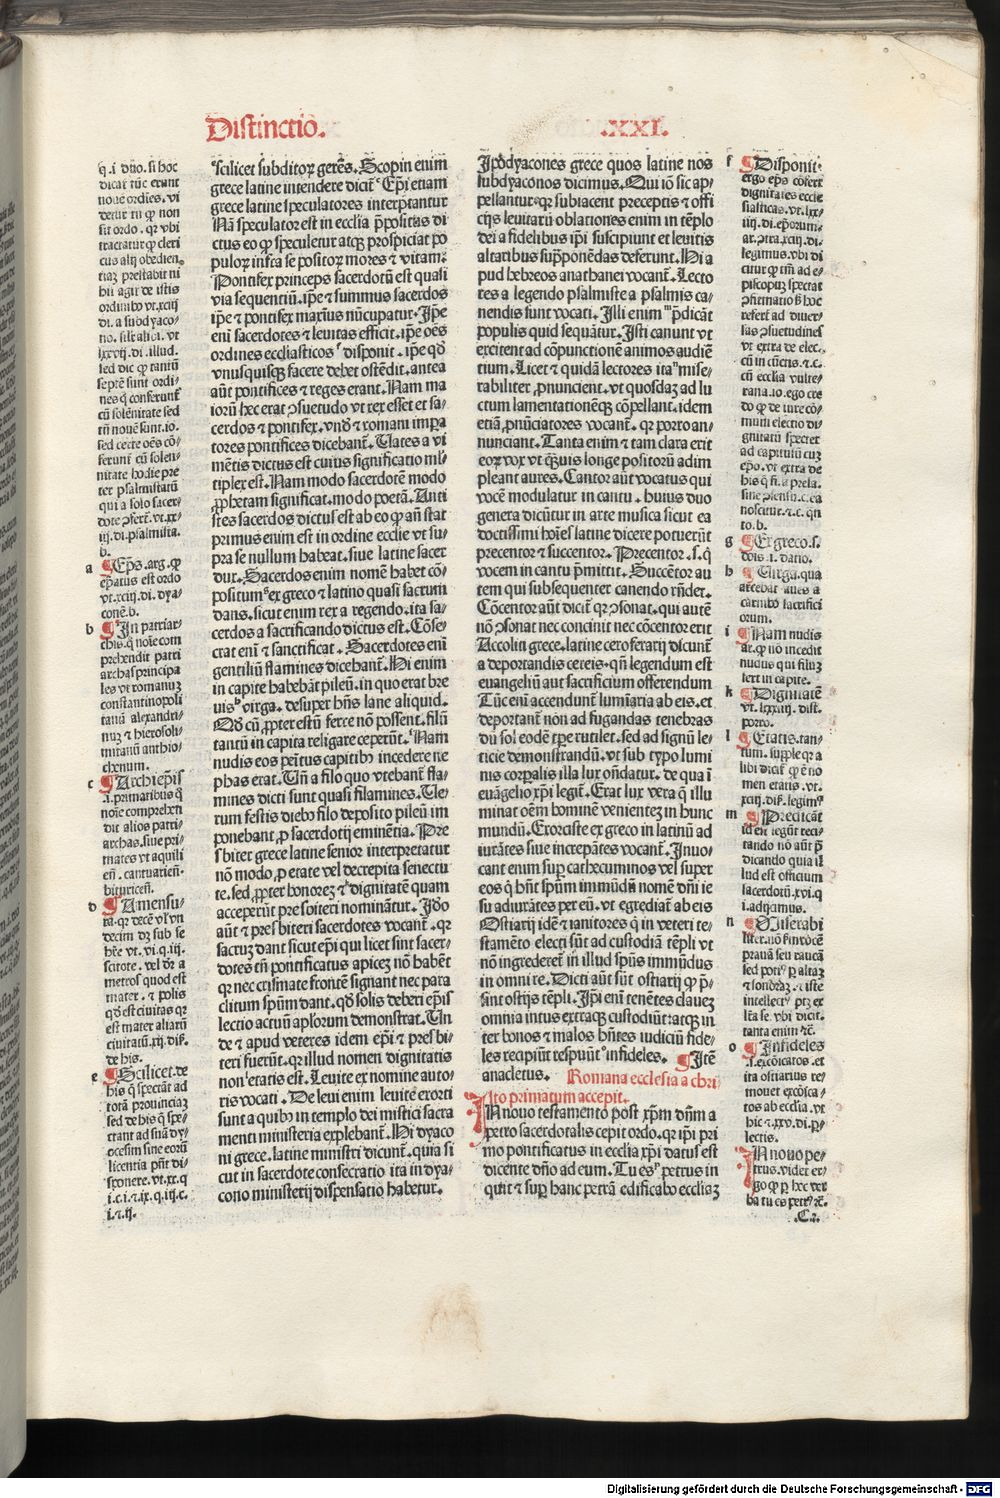 Distinctio. .XXI.
q̃.i duo. si hoc
dicat tũc erunt
noue ordĩes. vi
detur tñ ꝙ non
sit ordo. qꝛ vbi
tractatur ꝙ cleri
cus alij obedien
tiaꝫ prestabit ni
hil agit de istis
ordinibꝰ vt.xciij
di. a subdyaco/
no. sil'r alia. vt
lxxvij. di. illud.
sed dic ꝙ tantũ
septẽ sunt ordi/
nes q̃ conferunt᷑
cũ solẽnitate sed
tñ nouẽ sunt. io.
sed certe oẽs cõ/
ferunt᷑ cũ solen/
nitate hodie pre
ter psalmistatũ
qui a solo sacer/
dote ɔfert᷑. vt.xx/
iij. di. psalmista.
b.
a Ep̃s. arg. ꝙ
ep̃atus est ordo
vt. xciij. di. dya/
conẽ. b.
b In patriar/
chis. q̃ noĩe com
prehendit patri
archas principa
les vt romanuꝫ
constantinopoli
tanũ alexandri/
nuꝫ ⁊ hierosoli/
mitanũ anthio/
chenum.
c Archiep̃is
.i. primatibus q̃
noĩe comprehen
dit alios patri/
archas. siue pri/
mates vt aquili
eñ. cantuarieñ.
bituriceñ.
d A mensu/
ra. qꝛ decẽ vl' vn
decim dꝫ sub se
hr̃e vt. vi. q. iij.
scitote. vel dr̃ a
metros quod est
mater. ⁊ polis
qd̃ est ciuitas qꝛ
est mater aliarũ
ciuitatũ. xij. dis̃.
de his.
e Scilicet. de
his q̃ spectãt ad
totã prouinciaꝫ
sed de his q̃ spe/
ctant ad suã dy/
ocesim sine eorũ
licentia pñt di/
sponere. vt. ix. q
i. c. i. ⁊. ix. q. iij. c.
i. ⁊. ij.
scilicet subditoꝝ gerẽs. Scopin enim
grece latine intendere dicit᷑ Ep̃i etiam
grece latine speculatores interp̃tantur
Nã speculator est in eccl̃ia p̃positus di
ctus eo ꝙ speculetur atqꝫ prospiciat po
puloꝝ infra se positoꝝ mores ⁊ vitam
Pontifex princeps sacerdotũ est quasi
via sequentiũ. ip̃e ⁊ summus sacerdos
ip̃e ⁊ pontifex maximus nũcupatur. Ip̃e
enĩ sacerdotes ⁊ leuitas efficit. ip̃e oẽs
ordines eccl̃iasticos disponit. ip̃e qd̃
vnusquisqꝫ facere debet ostẽdit. antea
aũt pontifices ⁊ reges erant. Nam ma
iorũ hec erat ɔsuetudo vt rex esset et sa/
cerdos ⁊ pontifex. vnd̃ ⁊ romani imp̃a
tores pontifices dicebant᷑. Uates a vi
mẽtis dictus est cuius significatio ml'
tiplex est. Nam modo sacerdotẽ modo
ꝓphetam significat. modo poetã. Anti
stes sacerdos dictus est ab eo ꝙ añ stat
primus enim est in ordine eccl̃ie vt su/
pra se nullum habeat. siue latine sacer
dux. Sacerdos enim nomẽ habet cõ/
positum ex greco ⁊ latino quasi sacrum
dans. sicut enim rex a regendo. ita sa/
cerdos a sacrificando dictus est. Cõse/
crat enĩ ⁊ sanctificat. Sacerdotes enĩ
gentiliũ flamines dicebant᷑. Hi enim
in capite habebãt pileũ. in quo erat bre
uis virga. desuper hñs lane aliquid.
Qd̃ cũ ꝓpter estũ ferre nõ possent. filũ
tantũ in capita religare ceperũt. Nam
nudis eos peñtus capitibꝰ incedere ne
phas erat. Uñ a filo quo vtebant᷑ fla/
mines dicti sunt quasi filamines. Ue/
rum festis diebꝰ filo deposito pileũ im
ponebant ꝓ sacerdotij eminẽtia. Pre
sbiter grece latine senior interpretatur
nõ modo ꝓ etate vel decrepita senectu
te. sed ꝓpter honoreꝫ ⁊ dignitatẽ quam
acceperũt presbiteri nominãtur. Ideo
aũt ⁊ presbiteri sacerdotes vocant᷑. qꝛ
sacruꝫ dant sicut ep̃i qui licet sint sacer/
dotes tñ pontificatus apiceꝫ nõ habẽt
qꝛ nec crismate frontẽ signant nec para
clitum sp̃um dant. qd̃ solis deberi ep̃is
lectio actuũ ap̃lorum demonstrat. Un
de ⁊ apud veteres idem ep̃i ⁊ presbi/
teri fuerũt. qꝛ illud nomen dignitatis
non etatis est. Leuite ex nomine auto/
ris vocati. De leui enim leuite exorti
sunt a quibꝰ in templo dei mistici sacra
menti ministeria explebant᷑. Hi dyaco
ni grece. latine ministri dicunt᷑. quia si
cut in sacerdote consecratio ita in dya/
cono ministerij dispensatio habetur.
Ipodyacones grece quos latine nos
subdyaconos dicimus. Qui iõ sic ap/
pellantur. qꝛ subiacent preceptis ⁊ offi
cijs leuitarũ oblationes enim in tẽplo
dei a fidelibus ip̃i suscipiunt et leuitis
altaribus sup̃ponẽdas deferunt. Hi a
pud hebreos anathanei vocant᷑. Lecto
res a legendo psalmiste a psalmis ca/
nendis sunt vocati. Illi enim p̃dicãt
populis quid sequãtur. Isti canunt vt
excitent ad cõpunctionẽ animos audiẽ
tium. Licet ⁊ quidã lectores ita mise/
rabiliter ꝓnuncient. vt quosdaꝫ ad lu
ctum lamentationẽqꝫ cõpellant. idem
etiã ꝓnũciatores vocant᷑. qꝛ porro an/
nunciant. Tanta enim ⁊ tam clara erit
eoꝝ vox vt q̃uis longe positorũ adim
pleant aures. Cantor aũt vocatus qui
vocẽ modulatur in cantu. huius duo
genera dicũtur in arte musica sicut ea
doctissimi hoĩes latine dicere potuerũt
precentor ⁊ succentor. Precentor. s. q̃
vocem in cantu p̃mittit. Succẽtor au
tem qui subsequenter canendo rñdet.
Cõcentor aũt dicit᷑ qꝛ ɔsonat. qui autẽ
nõ ɔsonat nec concinit nec cõcentor erit
Accoliti grece. latine ceroferarij dicunt᷑
a deportandis cereis. qñ legendum est
euangeliũ aut sacrificium offerendum
Tũc enĩ accendunt᷑ luminaria ab eis. et
deportant᷑ non ad fugandas tenebras
dũ sol eodẽ tp̃e rutilet. sed ad signũ le/
ticie demonstrandũ. vt sub typo lumi
nis corꝑalis illa lux oñdatur. de qua ĩ
euãgelio xp̃i legit᷑. Erat lux vera q̃ illu
minat oẽm hominẽ venientez in hunc
mundũ. Exorciste ex greco in latinũ ad
iurãtes siue increpãtes vocant᷑. Inuo/
cant enim suꝑ cathecuminos vel super
eos q̃ hñt sp̃um immũdũ nomẽ dñi ie
su adiurãtes per eũ. vt egrediat᷑ ab eis
Ostiarij idẽ ⁊ ianitores q̃ in veteri te/
stamẽto electi sũt ad custodiã tẽpli vt
nõ ingrederet᷑ in illud sp̃us immũdus
in omni re. Dicti aũt sũt ostiarij ꝙ p̃/
sint ostijs tẽpli. Ip̃i enĩ tenẽtes clauez
omnia intus extraqꝫ custodiũt: atqꝫ in
ter bonos ⁊ malos hñtes iudiciũ fide/
les recipiũt respuũt infideles. Itẽ
anacletus. Romana ecclesia a chri
sto primatum accepit.
In nouo testamento post xp̃m dñm a
petro sacerdotalis cepit ordo. qꝛ ip̃i pri
mo pontificatus in eccl̃ia xp̃i datus est
dicente dño ad eum. Tu es petrus in
quit ⁊ suꝑ hanc petrã edificabo eccl̃iaꝫ
f Disponit.
ergo ep̃s cõfert
dignitates eccle
siasticas. vt. lxx/
iiij. di. ep̃orum.
ar. ɔtra. xciij. di.
legimus. vbi di
citur ꝙ tm̃ ad e/
piscopuꝫ spectat
ɔfirmatio ß hoc
refert᷑ ad diuer/
sas ɔsuetudines
vt extra de elec.
cũ in cũctis. ⁊. c.
cũ eccl̃ia vulte/
rana. io. ego cre
do ꝙ de iure cõ/
muni electio di/
gnitatũ spectet
ad capitulũ cuꝫ
ep̃o. vt extra de
his q̃ fi. a prela.
sine ɔsensu. c. ea
noscitur. ⁊. c. qñ
to. b.
g Ex greco. s.
dois. i. datio.
h Uirga. qua
arcebat aues a
carnibꝰ sacrifici
orum.
i Nam nudis
ar. ꝙ nõ incedit
nudus qui filuꝫ
fert in capite.
k Dignitatẽ
vt. lxxxiiij. dist.
porro.
l Etatis. tan/
tum. supple qꝛ a
libi dicit᷑ ꝙ ẽ no
men etatis. vt.
xciij. dis̃. legimꝰ
m Predicãt
id est legũt reci/
tando nõ aũt p̃
dicando quia il
lud est officium
sacerdotũ. xvi. q
i. adijciamus.
n Miserabi
liter. nõ ꝑ inuocẽ
prauã seu raucã
sed potiꝰ ꝑ altaꝫ
⁊ sonoraꝫ. ⁊ iste
intellectꝰ ptꝫ ex
lr̃a se. vbi dicit.
tanta enim ⁊c̃.
o Infideles
.s. excõicatos. et
ita ostiarius re/
mouet excõica/
tos ab eccl̃ia. vt
hic ⁊. xxv. di. ꝑ/
lectis.
In nouo pe/
trus. videt᷑ er/
go ꝙ ꝑ hec ver
ba tu es petrꝰ ⁊c̃.
.C 2.
Digitalisierung gefördert durch die Deutsche Forschungsgemeinschaft - DFG